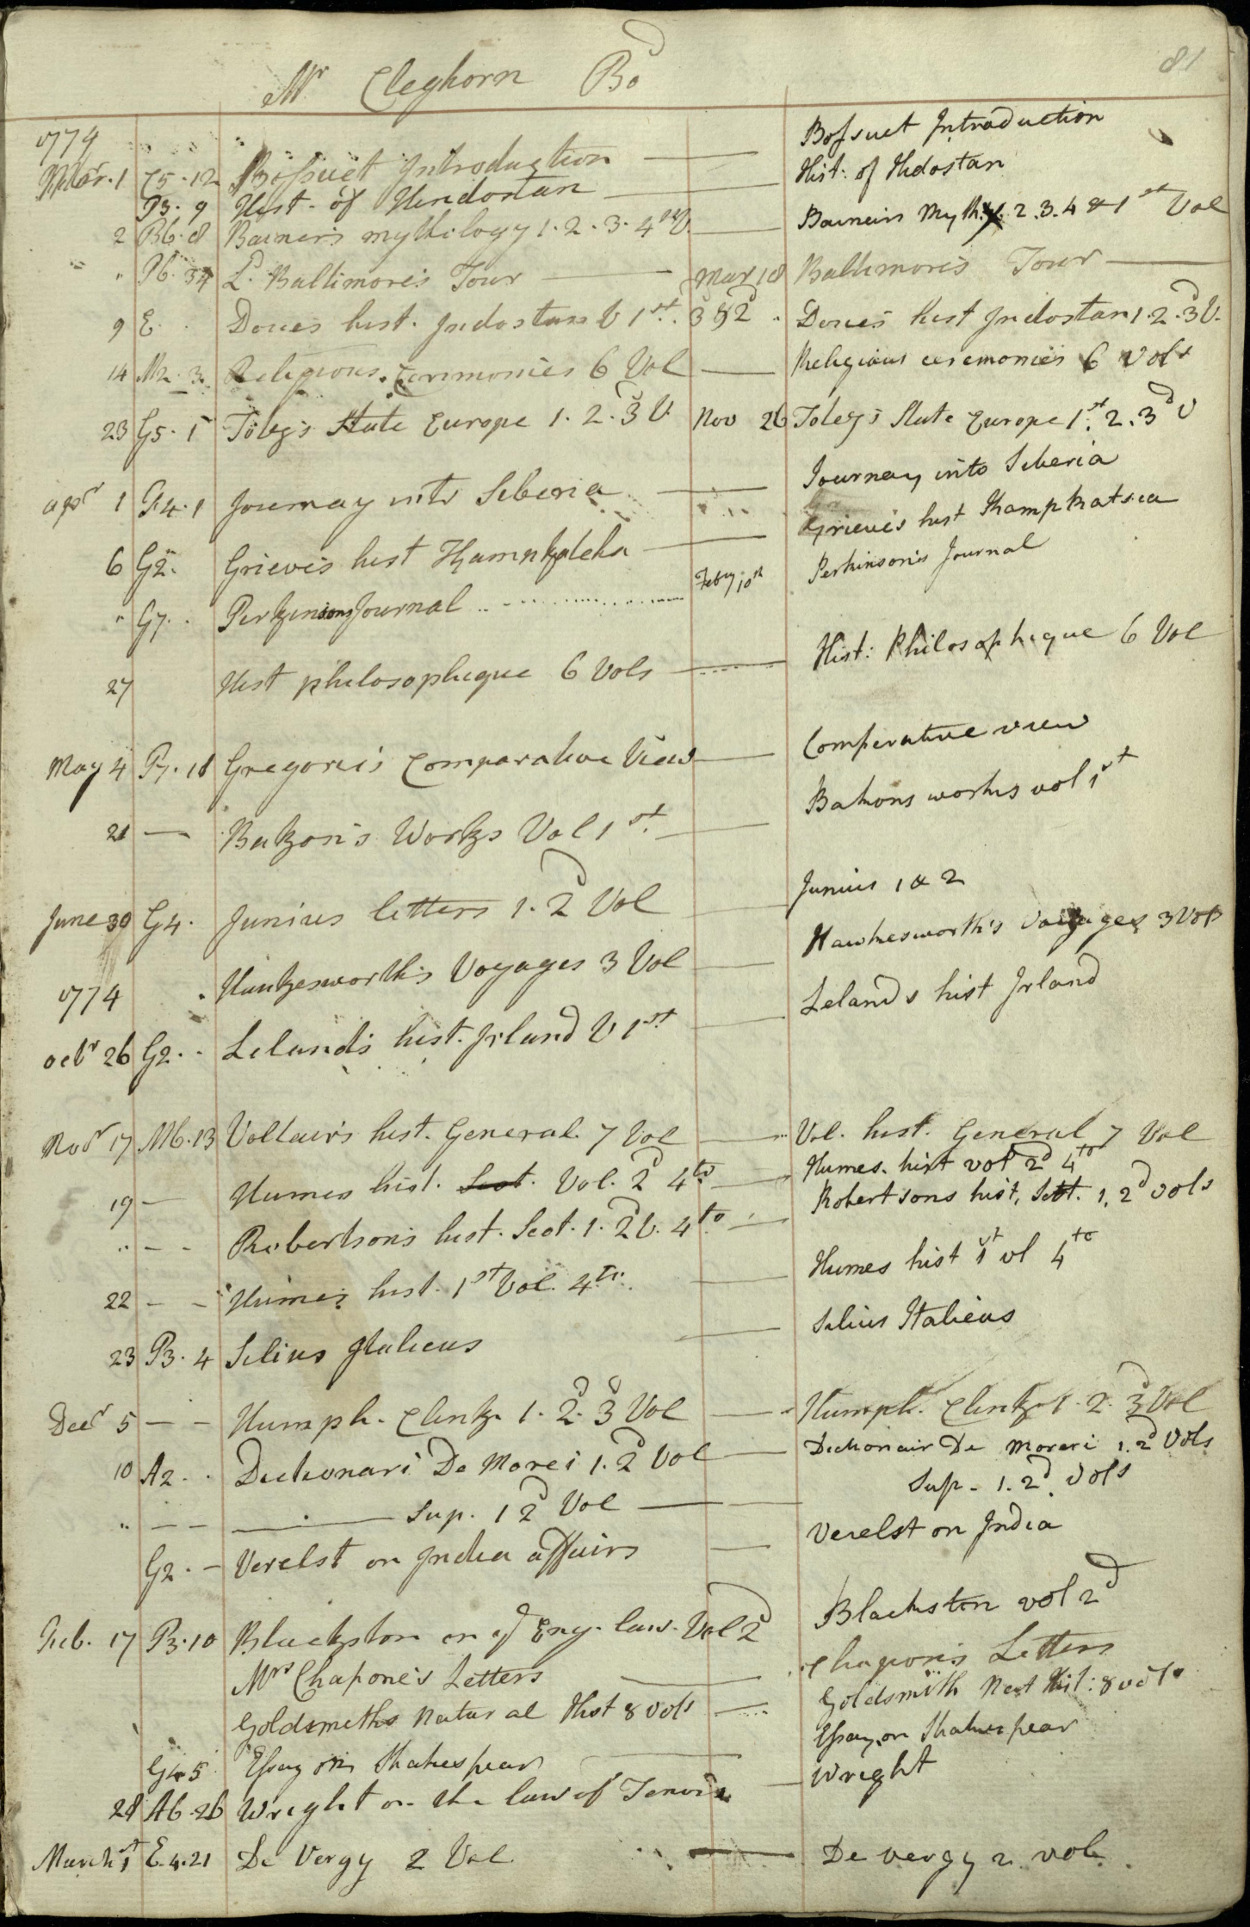 81
Mr Cleghorn Bd
1774
Mar. 1 C5.12 Bossuet Introduction — Bossuet Introduction
P3.9 Hist. of Hindostan — Hist: of Hidostan
2 B6.8 Baniers mythology 1.2.3.4th V. — Baneirs Myth. 2.3.4 & 1st Vol
" P6.34 Ld. Baltimore's Tour — Mar 18 Baltimore's Tour —
9 E. Dowes hist. Indostan V 1st. 3 & 2d. Dowes hist Indostan 1.2.3d V.
14 M2.3. Religious Cerimonies 6 Vol — Religious ceremonies 6 vols
23 G5.1 Toley's State Europe 1.2.3d V. Nov 26 Toley's State Europe 1st. 2.3d V
apr 1 G4.1 Journay into Siberia — Journay into Siberia
6 G2. Grieve's hist Kampkatcha — Grieve's hist Kampkatsca
" G7. Perkinsons Journal Feby 10th Perkinson's Journal
27 Hist philosophique 6 Vols — Hist: Philosophique 6 Vol
May 4 P7.18 Gregorie's Comparative View — Comperative view
21 — Bakon's Works Vol 1st. — Bakons works vol 1st
June 30 G4. Junius letters 1.2d Vol — Junius 1 & 2
Hawkesworth's Voyages 3 Vol — Hawkesworth's Voyages 3 Vols
1774
octr 26 G2. Leland's hist. Irland V 1st. — Leland's hist Irland
Novr 17 M6.13 Voltair's hist. General. 7 Vol — Vol. hist. General 7 Vol
19 — Humes hist. Scot. Vol. 2d 4to — Humes. hist vol 2d 4to
" — — Robertson's hist. Scot. 1.2d V. 4to — Robertsons hist. Scot. 1.2d vols
22 — — Humes hist. 1st Vol. 4to. — Humes hist 1st vl 4to
23 P3.4 Silius Italicus — Silius Italicus
Decr 5 — — Humph. Clink. 1.2d.3d Vol — Humph. Clink. 1.2.3d Vol
10 A2. Dictionari De Moreri 1.2d Vol — Dictionair De Moreri 1.2d Vols
" — — — Sup. 1 2d Vol — Sup. 1.2d. Vols
G2. — Verelst on India affairs — Verelst on India
Feb. 17 P3.10 Blackston on ye Eng. law. Vol 2d Blackston vol 2d
Mrs Chapone's Letters — Chapon's Letters
Goldsmiths Natural Hist 8 vols — Goldsmith Nat Hist: 8 vols
G4.5 Essay on Shakespear — Essay on Shakespear
28 A6.26 Wright on the law of Tenor — Wright
March 1st E.4.21 De Vergy 2 Vol. — De vergy 2 vol.